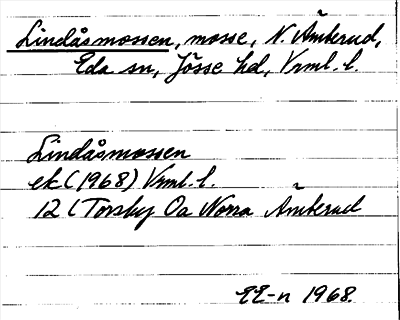 Lindåsmossen, mosse, N. Åmterud,
Eda sn, Jösse hd, Vrml. l.
Lindåsmossen
ek (1968) Vrml. l.
12 C Torsby Oa Norra Åmterud
EE-n 1968.